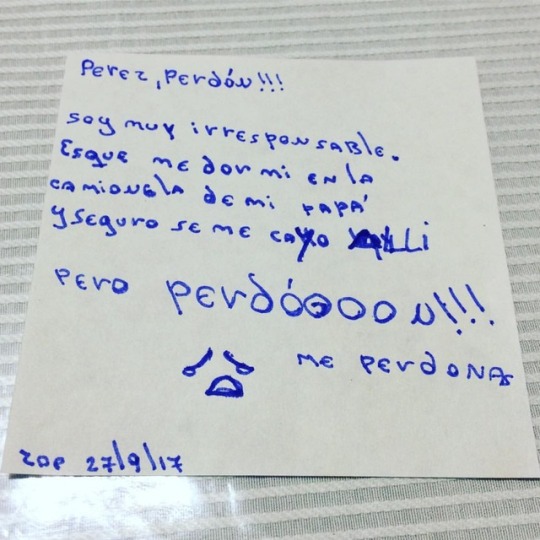 Perez, Perdón!!!
soy muy irresponsable.
Esque me dormi en la
camioneta de mi papá
y seguro se me cayo alli
pero perdóooon!!!
me perdonas
zoe 27/9/17